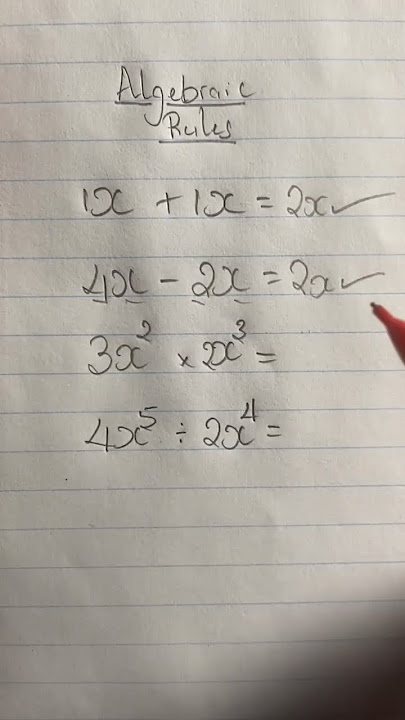 Algebraic
Rules
1x + 1x = 2x ✓
4x - 2x = 2x ✓
3x² × 2x³ =
4x⁵ ÷ 2x⁴ =